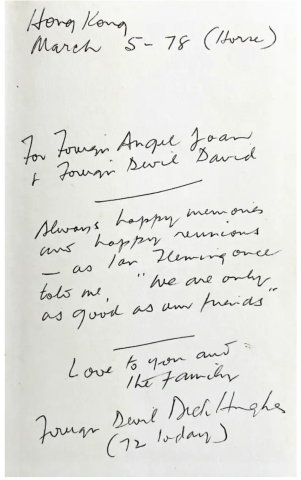 Hong Kong
March 5-78 (Horse)
For Foreign Angel Joan
+ Foreign Devil David
Always happy memories
and happy reunions
– as Ian Fleming once
told me, "We are only
as good as our friends"
Love to you and
the family
Foreign Devil Dick Hughes
(72 today)